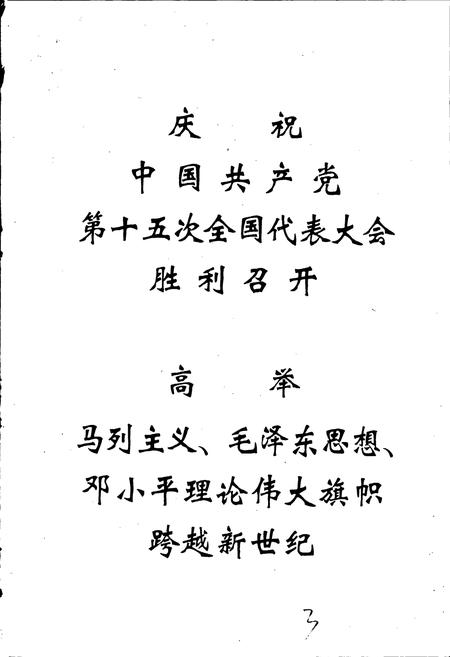 庆 祝
中国共产党
第十五次全国代表大会
胜利召开
高 举
马列主义、毛泽东思想、
邓小平理论伟大旗帜
跨越新世纪
3